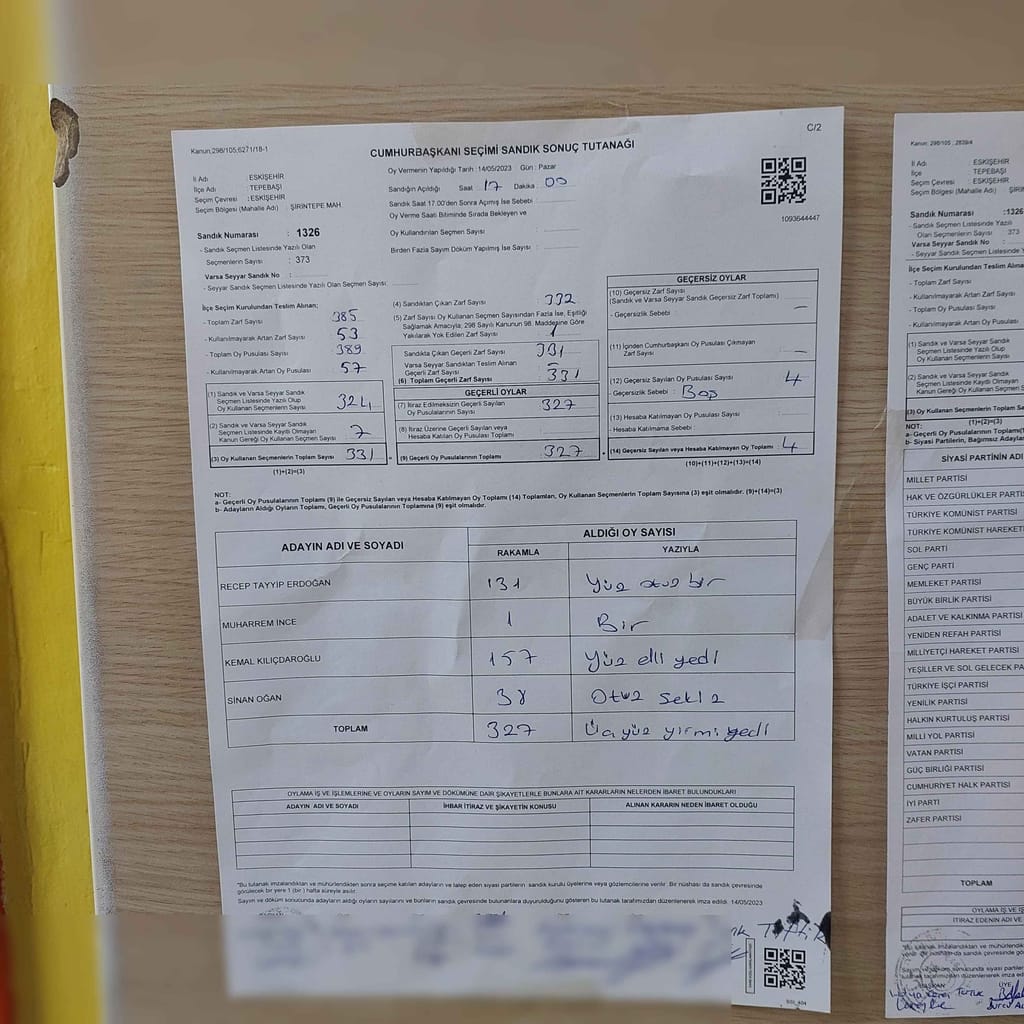 Kanun;298/105;6271/18-1
C/2
CUMHURBAŞKANI SEÇİMİ SANDIK SONUÇ TUTANAĞI
İl Adı : ESKİŞEHİR
İlçe Adı : TEPEBAŞI
Seçim Çevresi : ESKİŞEHİR
Seçim Bölgesi (Mahalle Adı) : ŞİRİNTEPE MAH.
Oy Vermenin Yapıldığı Tarih :14/05/2023 Gün : Pazar
Sandığın Açıldığı Saat 17 Dakika 00
Sandık Saat 17.00'den Sonra Açılmış İse Sebebi :
Oy Verme Saati Bitiminde Sırada Bekleyen ve
Oy Kullandırılan Seçmen Sayısı :
Birden Fazla Sayım Döküm Yapılmış İse Sayısı :
1093644447
Sandık Numarası : 1326
- Sandık Seçmen Listesinde Yazılı Olan
Seçmenlerin Sayısı : 373
Varsa Seyyar Sandık No :
- Seyyar Sandık Seçmen Listesinde Yazılı Olan Seçmen Sayısı:
İlçe Seçim Kurulundan Teslim Alınan;
- Toplam Zarf Sayısı : 385
- Kullanılmayarak Artan Zarf Sayısı : 53
- Toplam Oy Pusulası Sayısı : 389
- Kullanılmayarak Artan Oy Pusulası : 57
(1) Sandık ve Varsa Seyyar Sandık
Seçmen Listesinde Yazılı Olup
Oy Kullanan Seçmenlerin Sayısı : 324
(2) Sandık ve Varsa Seyyar Sandık
Seçmen Listesinde Kayıtlı Olmayan
Kanun Gereği Oy Kullanan Seçmen Sayısı : 7
(3) Oy Kullanan Seçmenlerin Toplam Sayısı : 331
(1)+(2)=(3)
(4) Sandıktan Çıkan Zarf Sayısı : 332
(5) Zarf Sayısı Oy Kullanan Seçmen Sayısından Fazla İse, Eşitliği
Sağlamak Amacıyla; 298 Sayılı Kanunun 98. Maddesine Göre
Yakılarak Yok Edilen Zarf Sayısı : 1
Sandıkta Çıkan Geçerli Zarf Sayısı : 331
Varsa Seyyar Sandıktan Teslim Alınan
Geçerli Zarf Sayısı : -
(6) Toplam Geçerli Zarf Sayısı : 331
GEÇERLİ OYLAR
(7) İtiraz Edilmeksizin Geçerli Sayılan
Oy Pusulalarının Sayısı : 327
(8) İtiraz Üzerine Geçerli Sayılan veya
Hesaba Katılan Oy Pusulası Toplamı :
(9) Geçerli Oy Pusulalarının Toplamı : 327
GEÇERSİZ OYLAR
(10) Geçersiz Zarf Sayısı
(Sandık ve Varsa Seyyar Sandık Geçersiz Zarf Toplamı) :
- Geçersizlik Sebebi : —
(11) İçinden Cumhurbaşkanı Oy Pusulası Çıkmayan
Zarf Sayısı : —
(12) Geçersiz Sayılan Oy Pusulası Sayısı : 4
- Geçersizlik Sebebi : Boş
(13) Hesaba Katılmayan Oy Pusulası Sayısı :
- Hesaba Katılmama Sebebi :
(14) Geçersiz Sayılan veya Hesaba Katılmayan Oy Toplamı : 4
(10)+(11)+(12)+(13)=(14)
NOT:
a- Geçerli Oy Pusulalarının Toplamı (9) ile Geçersiz Sayılan veya Hesaba Katılmayan Oy Toplamı (14) Toplamları, Oy Kullanan Seçmenlerin Toplam Sayısına (3) eşit olmalıdır. (9)+(14)=(3)
b- Adayların Aldığı Oyların Toplamı, Geçerli Oy Pusulalarının Toplamına (9) eşit olmalıdır.
ADAYIN ADI VE SOYADI ALDIĞI OY SAYISI
RAKAMLA YAZIYLA
RECEP TAYYİP ERDOĞAN 131 Yüz otuz bir
MUHARREM İNCE 1 Bir
KEMAL KILIÇDAROĞLU 157 Yüz elli yedi
SİNAN OĞAN 38 Otuz sekiz
TOPLAM 327 Üç yüz yirmi yedi
OYLAMA İŞ VE İŞLEMLERİNE VE OYLARIN SAYIM VE DÖKÜMÜNE DAİR ŞİKAYETLERLE BUNLARA AİT KARARLARIN NELERDEN İBARET BULUNDUKLARI
ADAYIN ADI VE SOYADI İHBAR İTİRAZ VE ŞİKAYETİN KONUSU ALINAN KARARIN NEDEN İBARET OLDUĞU
"Bu tutanak imzalandıktan ve mühürlendikten sonra seçime katılan adayların ve talep eden siyasi partilerin sandık kurulu üyelerine veya gözlemcilerine verilir. Bir nüshası da sandık çevresinde
görülecek bir yere 1 (bir) hafta süreyle asılır.
Sayım ve döküm sonucunda adayların aldığı oyların sayılarını ve bunların sandık çevresinde bulunanlara duyurulduğunu gösteren bu tutanak tarafımızdan düzenlenerek imza edildi. 14/05/2023
İl Adı : ESKİŞEHİR
İlçe : TEPEBAŞI
Seçim Çevresi : ESKİŞEHİR
Seçim Bölgesi (Mahalle Adı)
Sandık Numarası :1326
- Sandık Seçmen Listesinde Yazılı
Olan Seçmenlerin Sayısı : 373
Varsa Seyyar Sandık No
- Toplam Zarf Sayısı
- Kullanılmayarak Artan Zarf Sayısı
- Toplam Oy Pusulası Sayısı
(1) Sandık ve Varsa Seyyar Sandık
Seçmen Listesinde Yazılı Olup
Oy Kullanan Seçmenlerin Sayısı
(2) Sandık ve Varsa Seyyar Sandık
Seçmen Listesinde Kayıtlı Olmayan
(1)+(2)=(3)
NOT:
SİYASİ PARTİNİN ADI
MİLLET PARTİSİ
HAK VE ÖZGÜRLÜKLER
TÜRKİYE KOMÜNİST PARTİSİ
TÜRKİYE KOMÜNİST
SOL PARTİ
GENÇ PARTİ
MEMLEKET PARTİSİ
BÜYÜK BİRLİK PARTİSİ
ADALET VE KALKINMA PARTİSİ
YENİDEN REFAH PARTİSİ
MİLLİYETÇİ HAREKET PARTİSİ
YEŞİLLER VE SOL GELECEK
TÜRKİYE İŞÇİ PARTİSİ
YENİLİK PARTİSİ
HALKIN KURTULUŞ PARTİSİ
MİLLİ YOL PARTİSİ
VATAN PARTİSİ
GÜÇ BİRLİĞİ PARTİSİ
CUMHURİYET HALK PARTİSİ
İYİ PARTİ
ZAFER PARTİSİ
TOPLAM